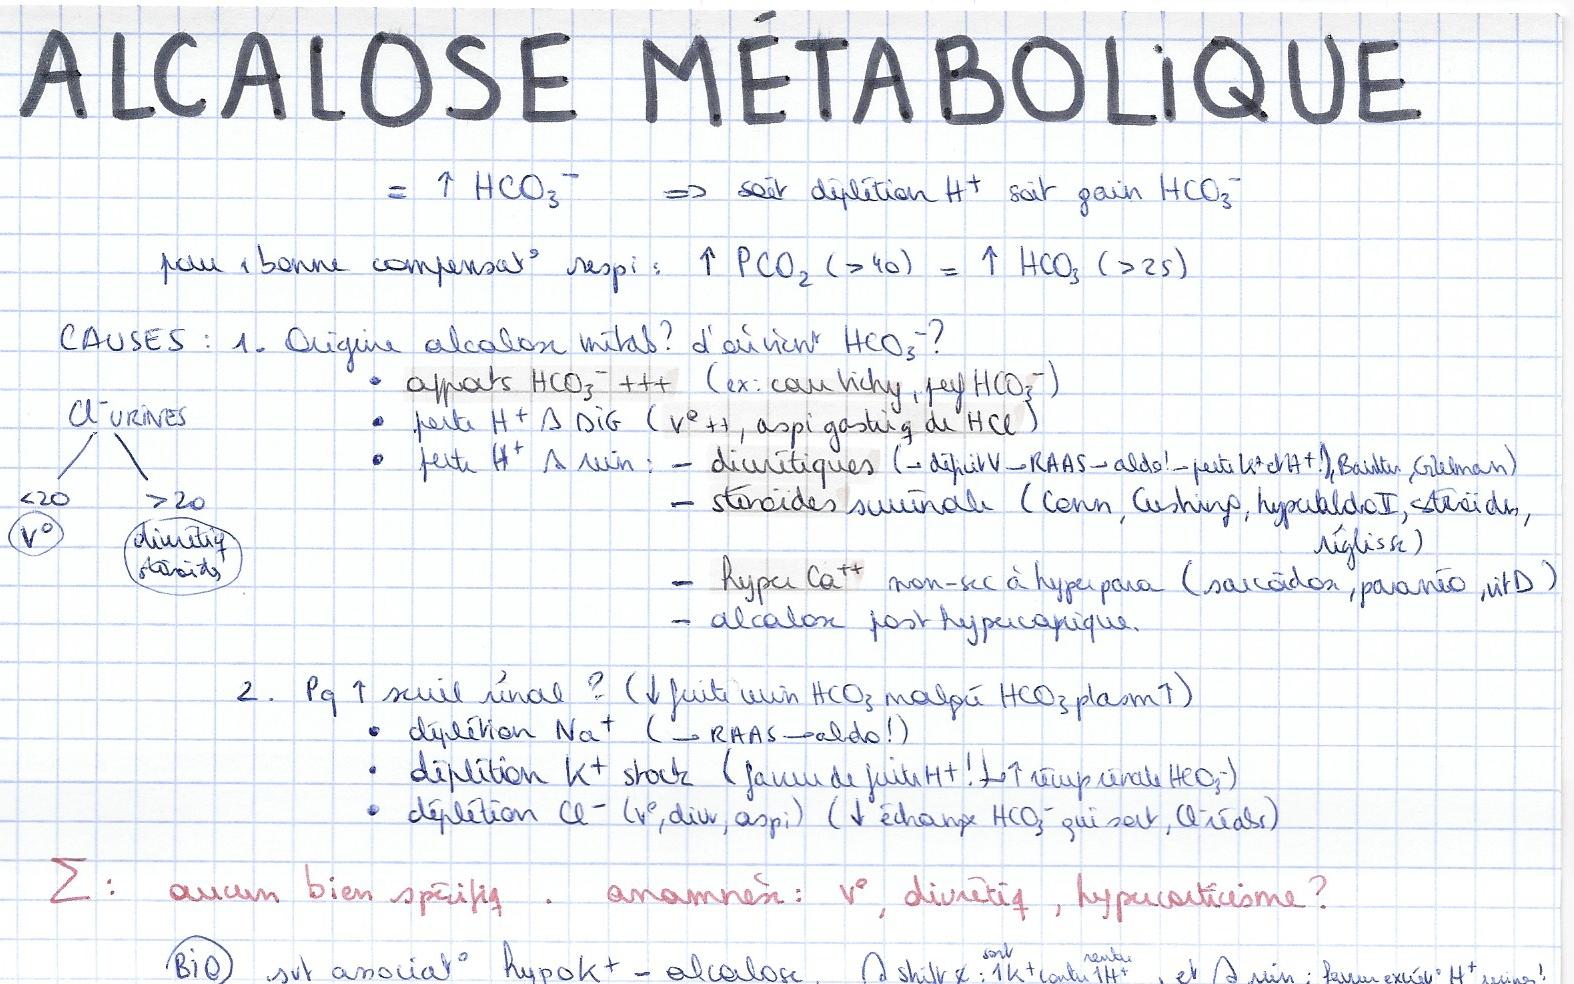 ALCALOSE MÉTABOLiQUE
= ↑ HCO₃⁻ => soit déplétion H⁺ soit gain HCO₃⁻
pour 1 bonne compensat° respi : ↑ PCO₂ (>40) = ↑ HCO₃ (>25)
CAUSES : 1. Origine alcalose métab? d'où vient HCO₃⁻?
• apports HCO₃⁻ +++ (ex: eau Vichy, perf HCO₃⁻)
Cl⁻ URINES
• perte H⁺ DiG (V° ++, aspi gastriq de HCl)
• perte H⁺ rein : – diurétiques (→ déficit V → RAAS → aldo! → perte K⁺ et H⁺!), Bartter, Gitelman)
<20 >20
– stéroïdes surrénale (Conn, Cushing, hyperaldo II, stéroïdes,
réglisse)
V° diurétiq
stéroïds
– hyper Ca⁺⁺ non-sec à hyperpara (sarcoïdose, paranéo, vit D)
– alcalose post hypercapnique.
2. Pq ↑ seuil rénal ? (↓ fuite urin HCO₃ malgré HCO₃ plasm ↑)
• déplétion Na⁺ (→ RAAS → aldo!)
• déplétion K⁺ stock (faveur de fuite H⁺! ↳ ↑ réabsp rénale HCO₃⁻)
• déplétion Cl⁻ (V°, diur, aspi) (↓ échange HCO₃⁻ qui sort, Cl⁻ réabs)
Σ : aucun bien spécifiq . anamnèse : V°, diurétiq, hypercorticisme ?
BiO svt associat° hypoK⁺ – alcalose. shift : 1K⁺ sort contre 1H⁺ rentre, et rein : faveur excrét° H⁺ urines!